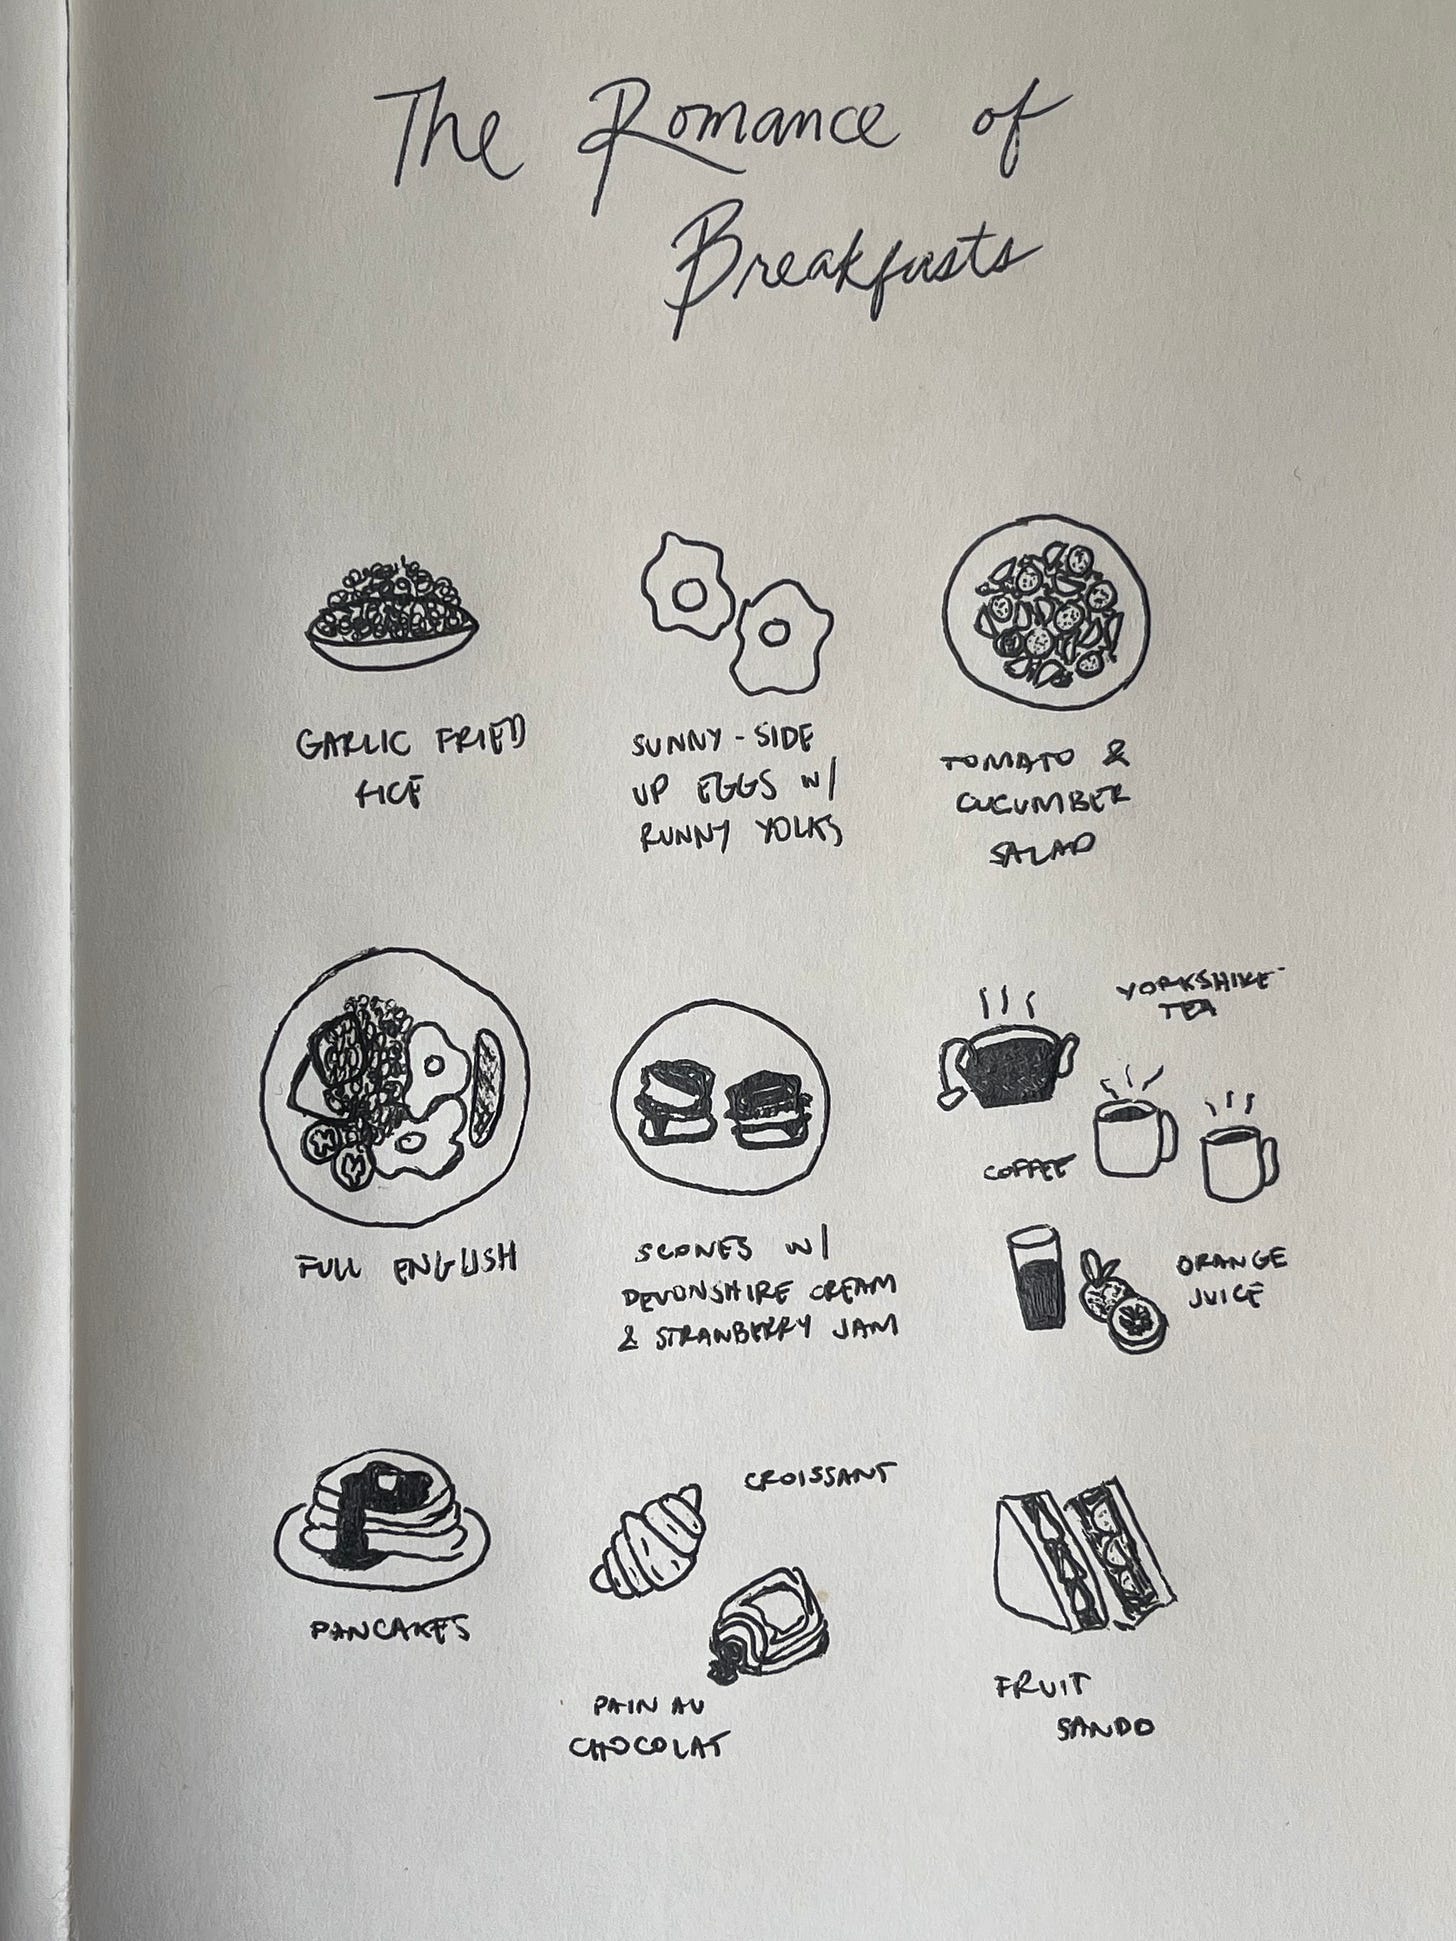 The Romance of
Breakfasts
GARLIC FRIED
RICE
SUNNY-SIDE
UP EGGS W/
RUNNY YOLKS
TOMATO &
CUCUMBER
SALAD
FULL ENGLISH
SCONES W/
DEVONSHIRE CREAM
& STRAWBERRY JAM
YORKSHIRE
TEA
COFFEE
ORANGE
JUICE
PANCAKES
CROISSANT
PAIN AU
CHOCOLAT
FRUIT
SANDO